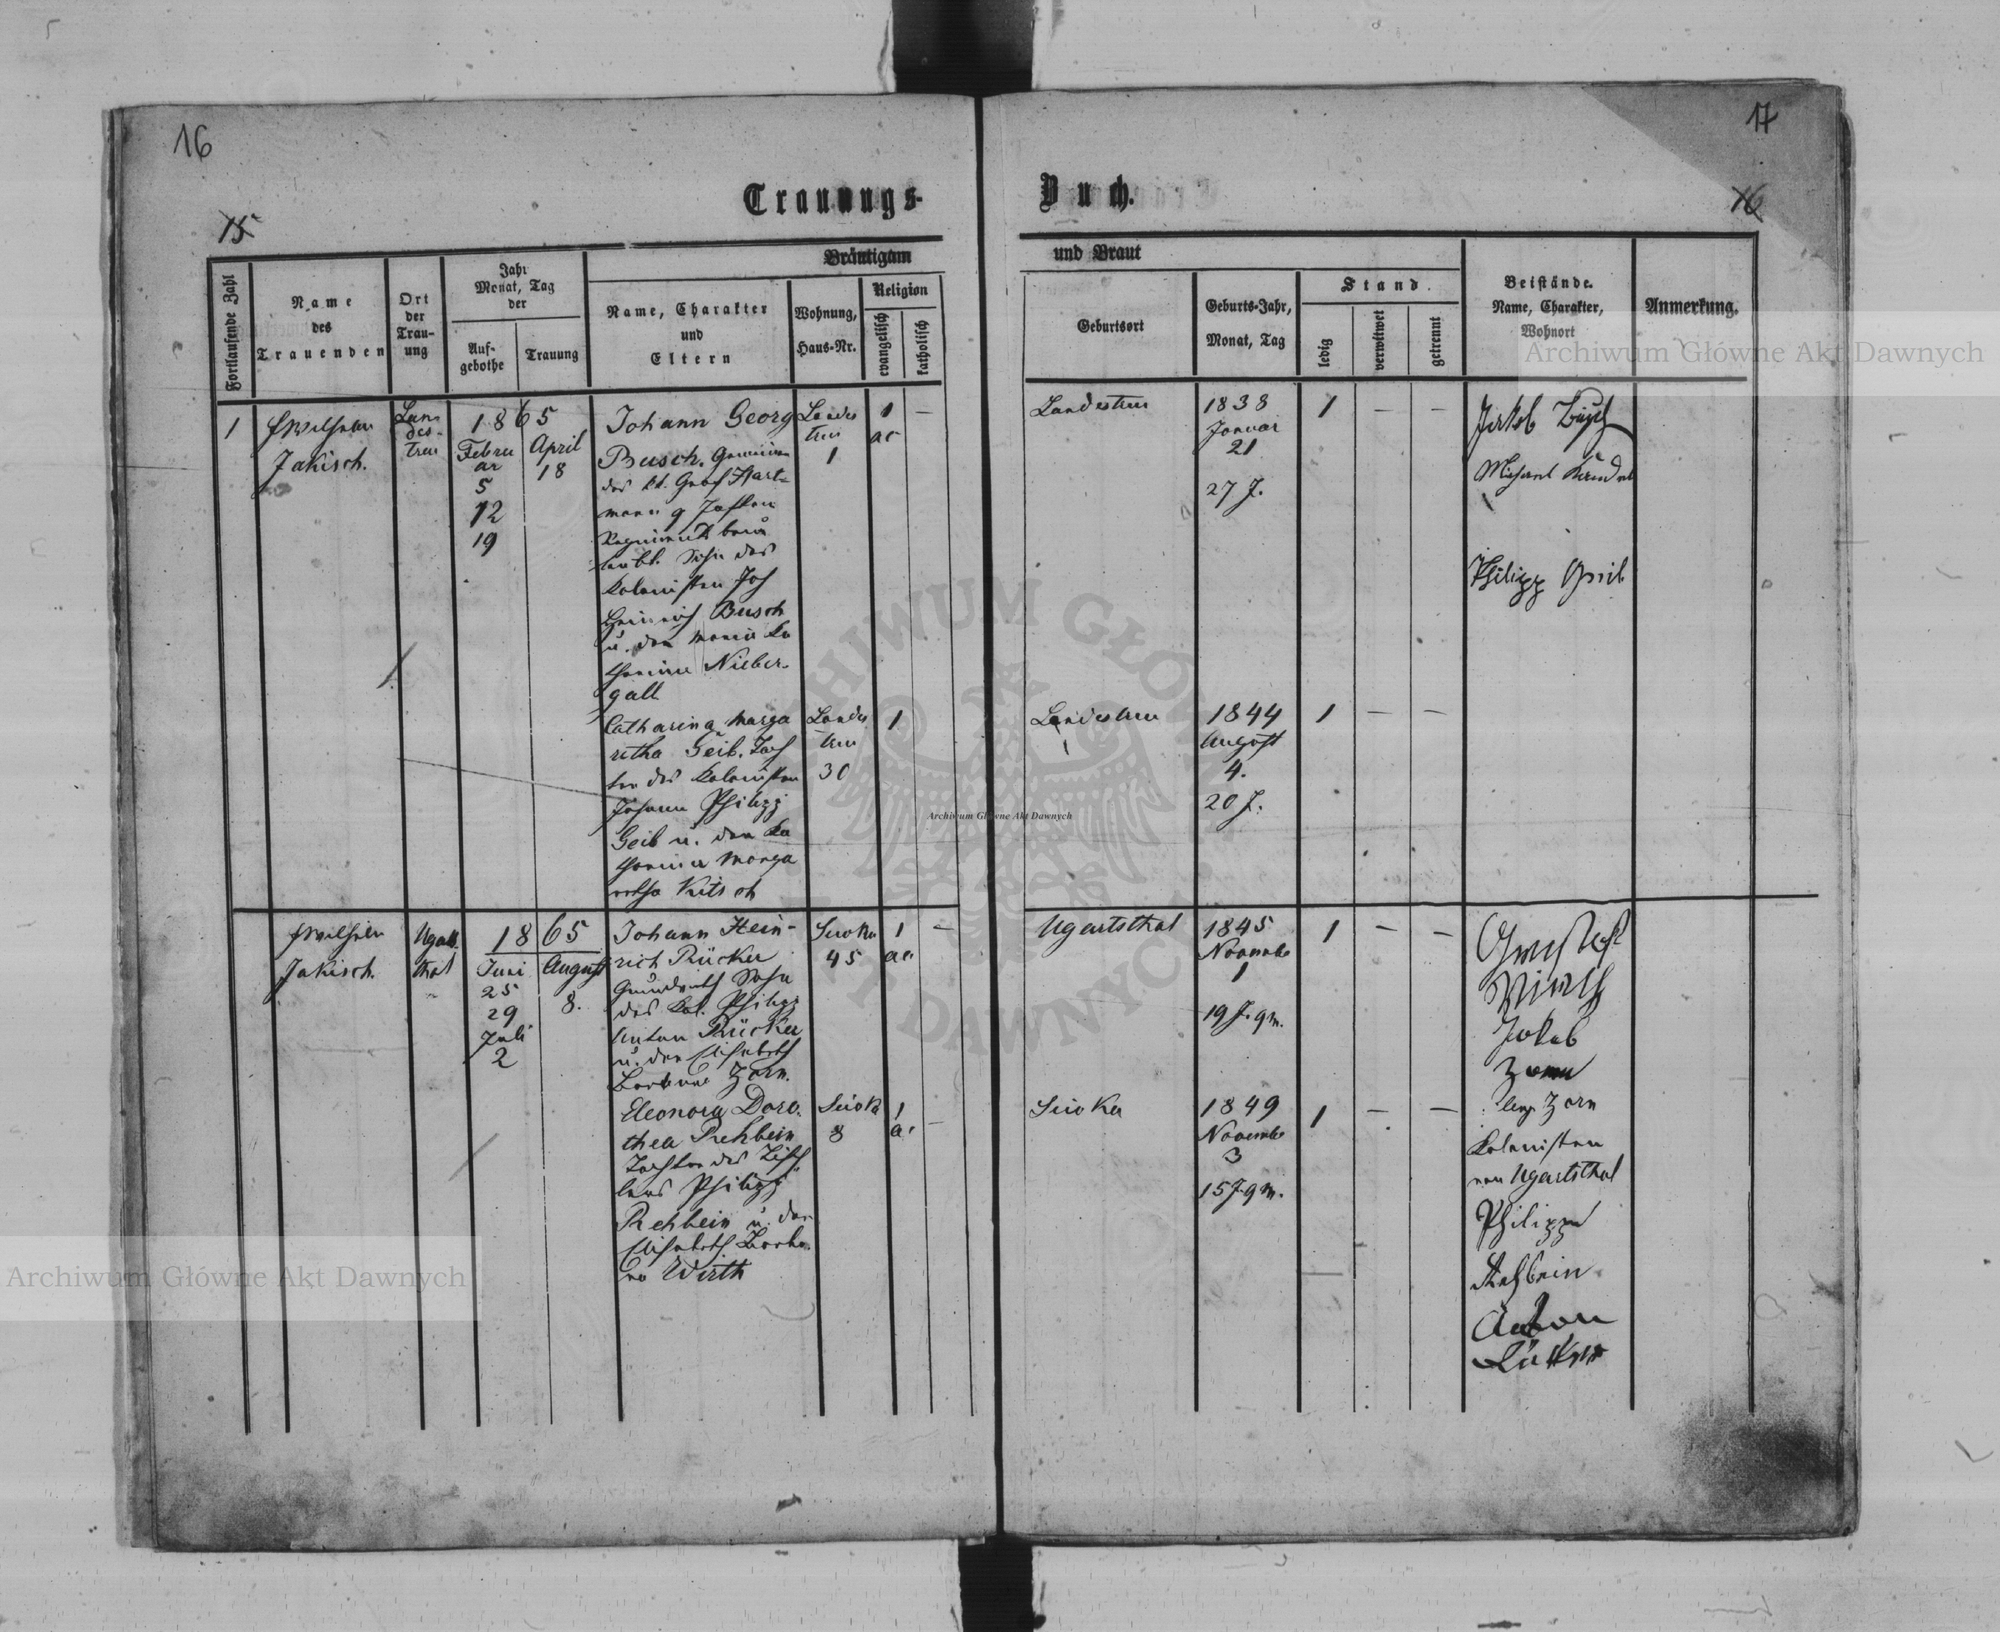 16
17
Trauungs-
Buch.
15
16
Fortlaufende Zahl
Name
des
Trauenden
Ort
der
Trau-
ung
Jahr
Monat, Tag
der
Auf-
gebothe
Trauung
Bräutigam
Name, Charakter
und
Eltern
Wohnung,
Haus-Nr.
Religion
evangelisch
katholisch
und Braut
Geburtsort
Geburts-Jahr,
Monat, Tag
Stand.
ledig
verwitwet
getrennt
Beistände.
Name, Charakter,
Wohnort
Anmerkung.
1
Wilhelm
Jakisch.
Lan
des-
treu
1865
Febru
ar
5
12
19
April
18
Johann Georg
Busch.
des Graf Hart-
mann 9
Sohn des
Kolonisten Joh
Heinrich Busch
u. der Maria Ka
tharina Nieber-
gall
Landes
treu
1
1
ac
—
Landestreu
1838
Januar
21
27 J.
1
—
—
Jakob Busch
Michael
Philipp Geib
Catharina Marga
retha Geib. Toch
ter des Kolonisten
Johann Philipp
Geib u. der Ka
tharina Marga
retha Kitsch
Landes
treu
30
1
Landestreu
1844
August
4.
20 J.
1
—
—
Wilhelm
Jakisch.
Ugarts
thal
1865
Juni
25
29
Juli
2
August
8.
Johann Hein-
rich Rücker
Grundwirth Sohn
des Kol. Philipp
Anton Rücker
u. der Elisabeth
Barbara Zorn.
Siwka
45
1
ac
—
Ugartsthal
1845
November
1
19 J. 9 M.
1
—
—
Gustav
Wirth
Jakob
Zorn
Zorn
Kolonisten
von Ugartsthal
Philipp
Rehbein
Anton
Rücker
Eleonora Doro-
thea Rehbein
Tochter des Tisch
lers Philipp
Rehbein u. der
Elisabeth Barba
ra Wirth
Siwka
8
1
ac
—
Siwka
1849
November
3
15 J. 9 M.
1
—
—
Archiwum Główne Akt Dawnych
Archiwum Główne Akt Dawnych
Archiwum Główne Akt Dawnych
ARCHIWUM GŁÓWNE AKT DAWNYCH